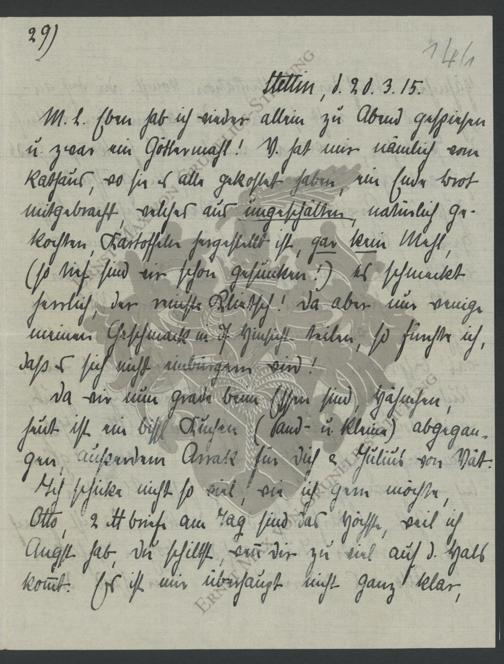 29)
144
Stettin, d. 20.3.15.
M. L. Eben hab ich wieder allein zu Abend gespiesen
u. zwar ein Göttermahl! V. hat mir nämlich vom
Rathaus, wo sie es alle gekostet haben, ein Ende Brot
mitgebracht, welches aus ungeschälten, natürlich ge-
kochten Kartoffeln hergestellt ist, gar kein Mehl,
(so tief sind wir schon gesunken!) es schmeckt
herrlich, der reinste Klietsch! Da aber nur wenige
meinen Geschmack in d. Hinsicht teilen, so fürchte ich,
daß es sich nicht einbürgern wird!
Da wir nun grade beim Essen sind Häschen,
heut ist ein bißl Kuchen (Sand- u. kleine) abgegan-
gen, außerdem Arrak für dich & Julius von Vat.
Ich schicke nicht so viel, wie ich gern möchte,
Otto, 2 Briefe am Tag sind das Höchste, weil ich
Angst hab, du schiltst, wenn dir zu viel auf d. Hals
kommt. Es ist mir überhaupt nicht ganz klar,
ERNST
STIFTUNG